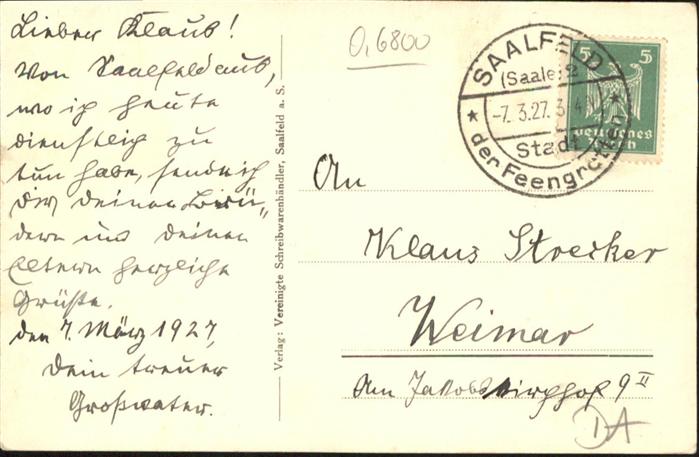 Lieber Klaus!
Von Saalfeld aus,
wo ich heute
dienstlich zu
tun habe, sende ich
dir, deinen Brü„
dern und deinen
Eltern herzliche
Grüße.
den 7. März 1927,
Dein treuer
Grossvater.
Verlag: Vereinigte Schreibwarenhändler, Saalfeld a. S.
0,6800
SAALFELD
(Saale) 2
-7.3.27. 3
Stadt
der Feengrotten
5 5
Deutsches
Reich
An
Klaus Strecker
Weimar
Am Jakobskirchhof 9 II
DA